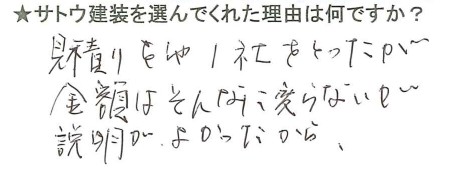 ★サトウ建装を選んでくれた理由は何ですか？
見積りを他1社をとったが
金額はそんなに変らないが
説明がよかったから、